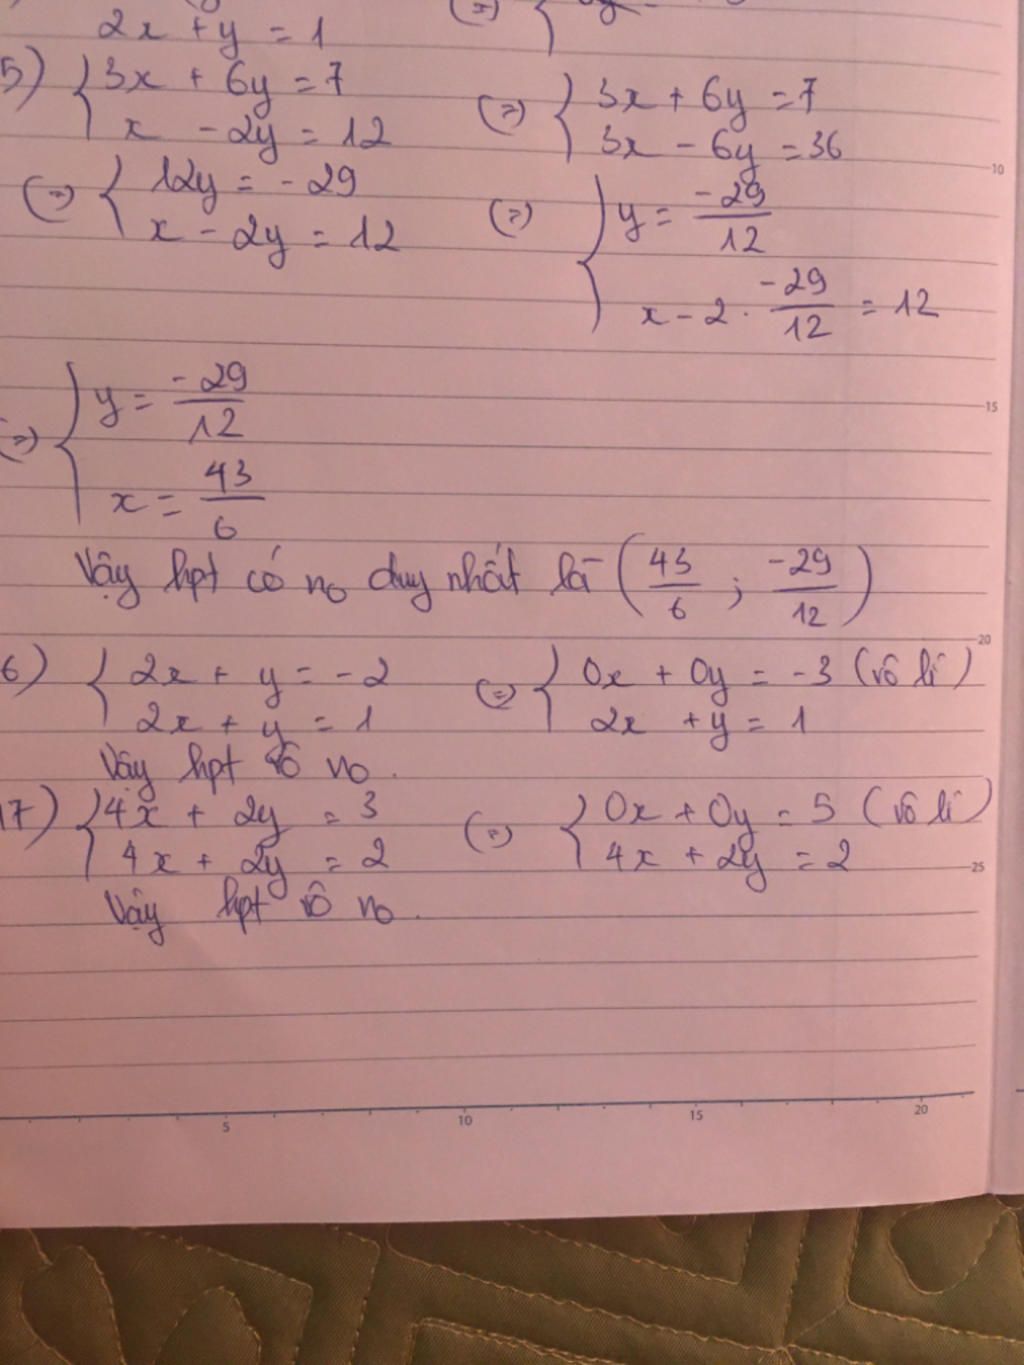 2x + y = 1 (=) {
5) { 3x + 6y = 7 (=) { 3x + 6y = 7
x - 2y = 12 3x - 6y = 36
(=) { 12y = -29 (=) { y = -29/12
x - 2y = 12 x - 2 . -29/12 = 12
(=) { y = -29/12
x = 43/6
Vậy hpt có no duy nhất là (43/6 ; -29/12)
6) { 2x + y = -2 (=) { 0x + 0y = -3 (vô lí)
2x + y = 1 2x + y = 1
Vậy hpt vô no.
17) { 4x + 2y = 3 (=) { 0x + 0y = 5 (vô lí)
4x + 2y = 2 4x + 2y = 2
Vậy hpt vô no.
10
15
20
25
5 10 15 20